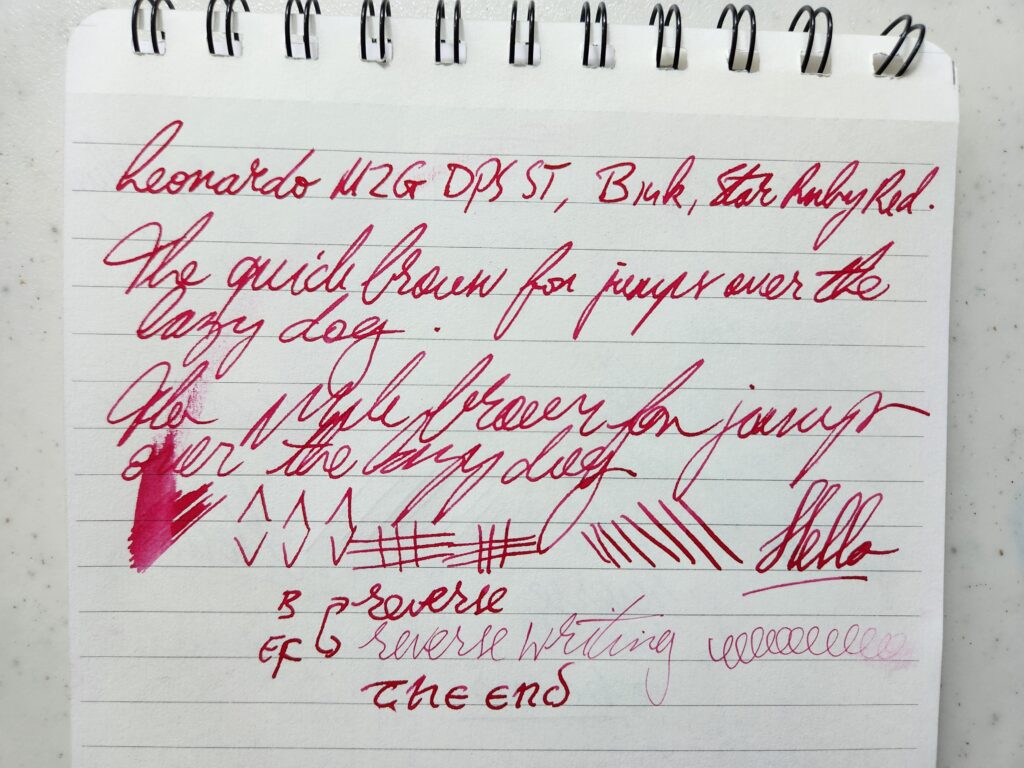 Leonardo MZG DPS ST, B ink, Star Ruby Red.
The quick brown fox jumps over the
lazy dog.
The quick brown fox jumps
over the lazy dog
Hello
B reverse
EF reverse writing
The End